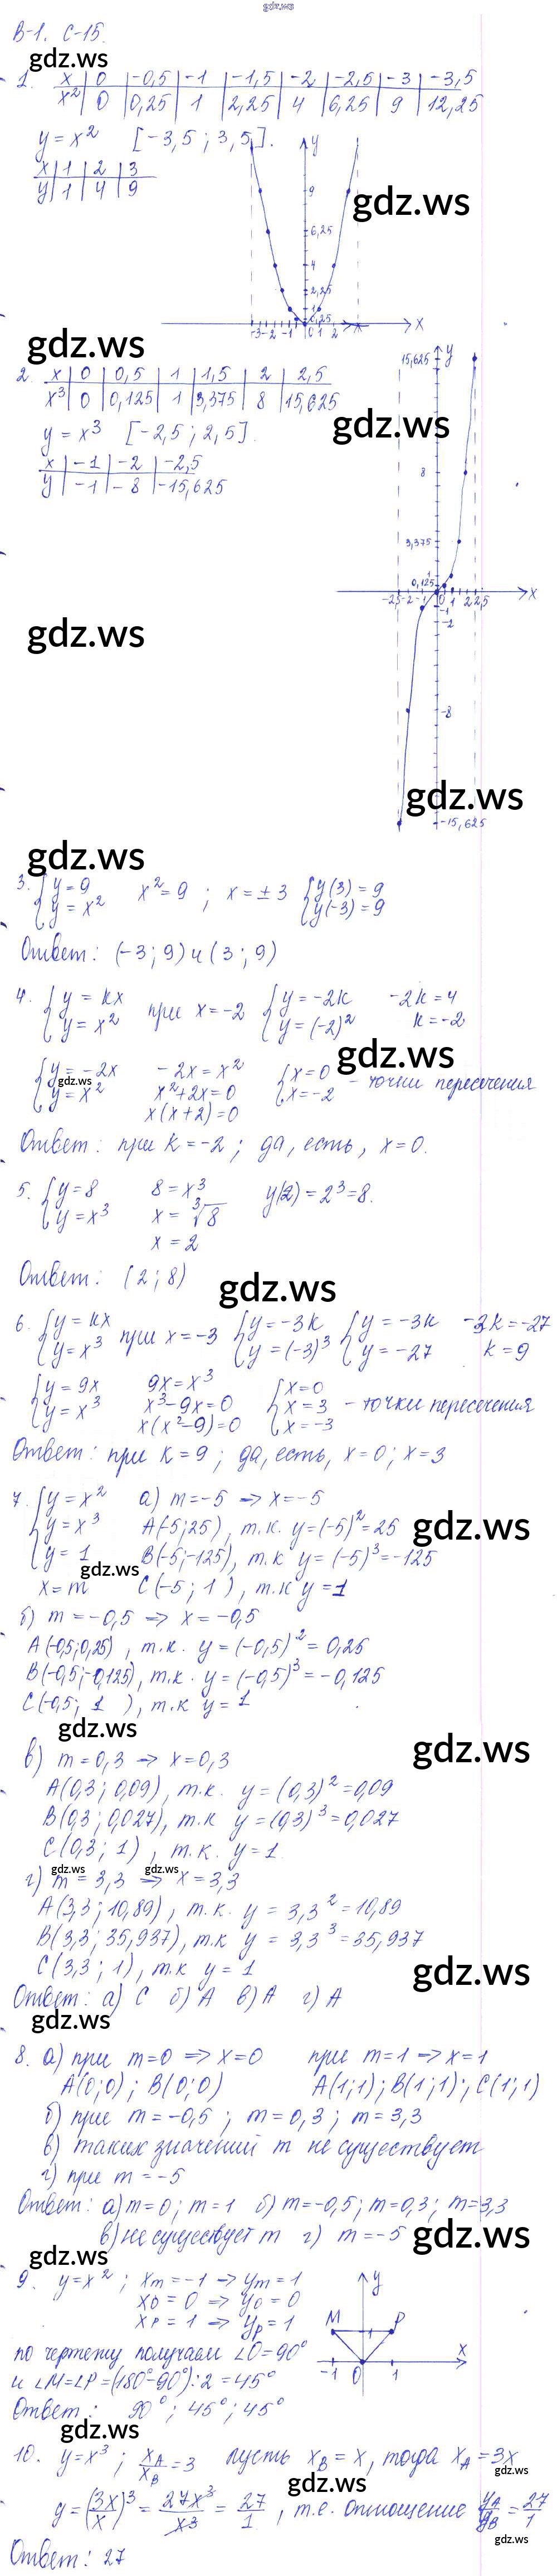 gdz.ws
В-1. С-15.
gdz.ws
1. x | 0 | -0,5 | -1 | -1,5 | -2 | -2,5 | -3 | -3,5
x² | 0 | 0,25 | 1 | 2,25 | 4 | 6,25 | 9 | 12,25
y = x² [-3,5 ; 3,5].
x | 1 | 2 | 3
y | 1 | 4 | 9
gdz.ws
y
9
6,25
4
2,25
1
0,25
-3 -2 -1 0 1 2 x
gdz.ws
2. x | 0 | 0,5 | 1 | 1,5 | 2 | 2,5
x³ | 0 | 0,125 | 1 | 3,375 | 8 | 15,625
gdz.ws
y = x³ [-2,5 ; 2,5].
x | -1 | -2 | -2,5
y | -1 | -8 | -15,625
15,625 y
8
3,375
1
0,125
-2,5 -2 -1 0 1 2 2,5 x
-1
-2
gdz.ws
-8
gdz.ws
-15,625
gdz.ws
3. { y = 9 x² = 9 ; x = ± 3 { y(3) = 9
y = x² y(-3) = 9
Ответ: (-3 ; 9) и (3 ; 9)
4. { y = kx при x = -2 { y = -2k -2k = 4
y = x² y = (-2)² k = -2
gdz.ws
{ y = -2x -2x = x² { x = 0 - точки пересечения
gdz.ws
y = x² x² + 2x = 0 x = -2
x(x + 2) = 0
Ответ: при k = -2 ; да, есть, x = 0.
5. { y = 8 8 = x³ y(2) = 2³ = 8.
y = x³ x = ³√8
x = 2
Ответ: (2 ; 8)
gdz.ws
6. { y = kx при x = -3 { y = -3k { y = -3k -3k = -27
y = x³ y = (-3)³ y = -27 k = 9
{ y = 9x 9x = x³ { x = 0
y = x³ x³ - 9x = 0 x = 3 - точки пересечения
x(x² - 9) = 0 x = -3
Ответ: при k = 9 ; да, есть, x = 0 ; x = 3
7. { y = x² а) m = -5 => x = -5
y = x³ A(-5;25), т.к. y = (-5)² = 25
gdz.ws
y = 1 B(-5;-125), т.к y = (-5)³ = -125
gdz.ws
x = m C(-5 ; 1 ), т.к y = 1
б) m = -0,5 => x = -0,5
A(-0,5;0,25) , т.к. y = (-0,5)² = 0,25
B(-0,5;-0,125), т.к. y = (-0,5)³ = -0,125
C(-0,5; 1 ), т.к y = 1
gdz.ws
в) m = 0,3 => x = 0,3
gdz.ws
A(0,3 ; 0,09), т.к. y = (0,3)² = 0,09
B(0,3 ; 0,027), т.к y = (0,3)³ = 0,027
C(0,3 ; 1) , т.к. y = 1.
gdz.ws gdz.ws
г) m = 3,3 => x = 3,3
A(3,3 ; 10,89) , т.к. y = 3,3² = 10,89
B(3,3 ; 35,937), т.к y = 3,3³ = 35,937
C(3,3 ; 1), т.к y = 1
gdz.ws
Ответ: а) C б) A в) A г) A
gdz.ws
8. а) при m = 0 => x = 0 при m = 1 => x = 1
A(0;0) ; B(0;0) A(1;1) ; B(1;1) ; C(1;1)
б) при m = -0,5 ; m = 0,3 ; m = 3,3
в) таких значений m не существует
г) при m = -5
Ответ: а) m = 0 ; m = 1 б) m = -0,5 ; m = 0,3 ; m = 3,3
в) не существует m г) m = -5
gdz.ws
gdz.ws
9. y = x² ; xм = -1 => yм = 1
xо = 0 => yо = 0
xр = 1 => yр = 1
y
M P
-1 0 1 x
по чертежу получаем ∠O = 90°
и ∠M = ∠P = (180° - 90°) : 2 = 45°
Ответ: 90° ; 45° ; 45°
gdz.ws
10. y = x³ ; xA/xB = 3 пусть xB = x, тогда xA = 3x
gdz.ws
gdz.ws
y = (3x/x)³ = 27x³/x³ = 27/1 , т.е. отношение yA/yB = 27/1
gdz.ws
Ответ: 27